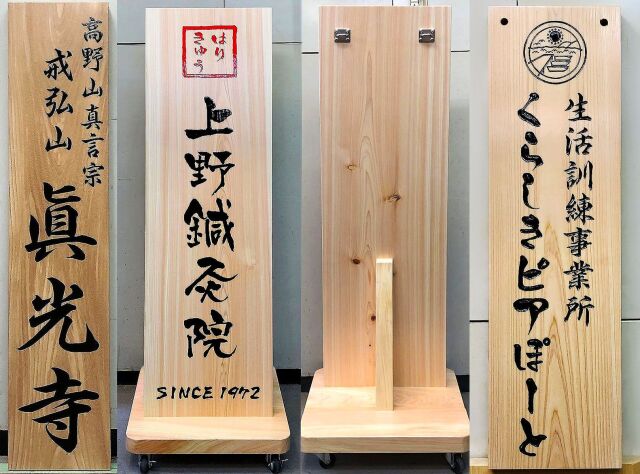 高野山真言宗
戒弘山
眞光寺
はり
きゅう
上野鍼灸院
SINCE 1972
生活訓練事業所
くらしきピアぽーと